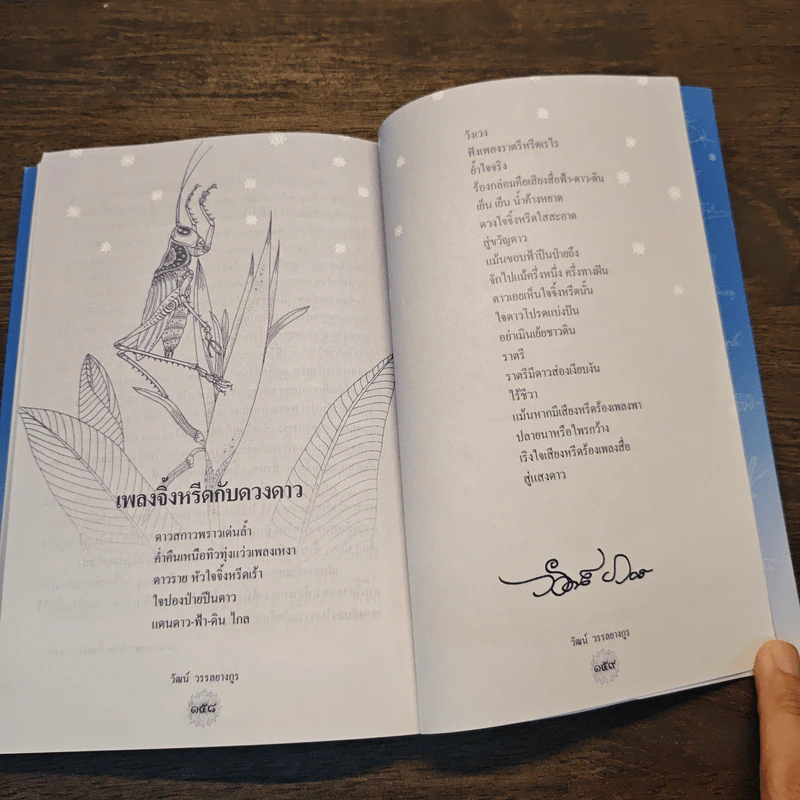 เพลงจิ้งหรีดกับดวงดาว
ดาวสกาวพราวเด่นล้ำ
ค่ำคืนเหนือทิวทุ่งแว่วเพลงเหงา
ดาวราย หัวใจจิ้งหรีดเร้า
ใจปองป่ายปีนดาว
แดนดาว-ฟ้า-ดิน ไกล
วัฒน์ วรรลยางกูร
๑๕๘
วังเวง
ฟังเพลงราตรีหรีดเรไร
ย้ำใจจริง
ร้องกล่อมคือเสียงสื่อฟ้า-ดาว-ดิน
เย็น เย็น น้ำค้างหยาด
ดวงใจจิ้งหรีดใสสะอาด
สู่ขวัญดาว
แม้นขอบฟ้าปีนป่ายถึง
จักไปแม้ครึ่งหนึ่ง ครึ่งทางฝัน
ดาวเอยเห็นใจจิ้งหรีดนั้น
ใจดาวโปรดแบ่งปัน
อย่าเมินเย้ยชาวดิน
ราตรี
ราตรีมีดาวส่องเงียบงัน
ไร้ชีวา
แม้นหากมีเสียงหรีดร้องเพลงพา
ปลายนาหรือไพรกว้าง
เริงใจเสียงหรีดร้องเพลงสื่อ
สู่แสงดาว
วัฒน์ วรรลยางกูร
๑๕๙